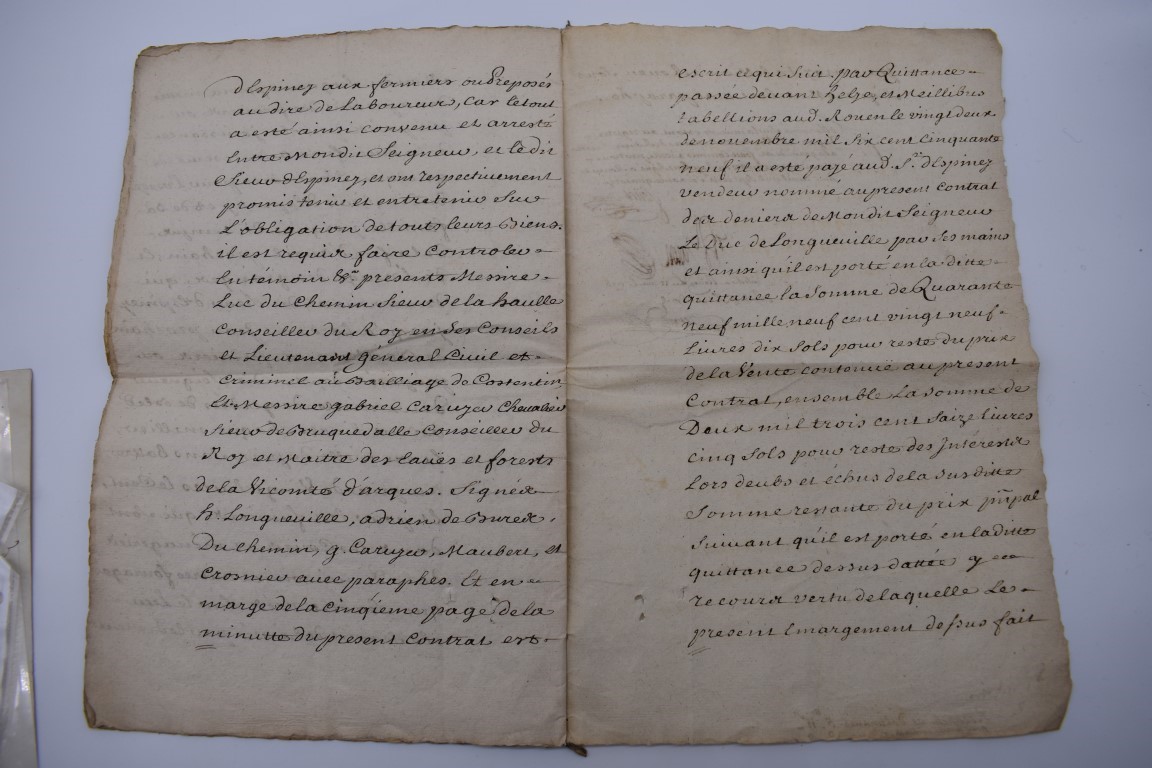 d'Espinez aux fermiers ou Preposés
au dire de Laboureurs, car le tout
a esté ainsi convenu et arresté
Entre Mondit Seigneur, et ledit
Sieur d'Espinez, et ont respectivement
promis tenir et entretenir sur
L'obligation de touts leurs Biens.
il est requis faire Controler
En témoin &c.ª presents Messire
Luc du Chemin Sieur de la haulle
Conseiller du Roy en ses Conseils
et Lieutenant général Civil et
Criminel au Bailliage de Costentin
Et Messire gabriel Caruyer Chevalier
Sieur de Bruquedalle Conseiller du
Roy et Maitre des Eaües et forests
de la Vicomté d'arques. Signés
h. Longueville, adrien de Bures,
Du Chemin, g. Caruyer, Maubert, et
Crosnier avec paraphes. Et en
marge de la Cinqieme page de la
minutte du present Contrat est
escrit ce qui suit par Quittance
passée devant et Meillibus
Tabellions aud. Rouen le vingt deux
de novembre mil six cent Cinquante
neuf il a esté payé aud. Sr. d'Espinez
vendeur nommé au present Contrat
des deniers de Mondit Seigneur
Le Duc de Longueville par ses mains
et ainsi qu'il est porté en la ditte
quittance la somme de Quarante
neuf mille neuf cent vingt neuf
Livres dix sols pour reste du prix
de la Vente contenüe au present
Contrat, ensemble la somme de
Deux mil trois cent saize livres
cinq sols pour reste des Intérests
Lors deubs et échus de la susditte
somme restante du prix pñpal
suivant qu'il est porté en laditte
quittance dessus dattée y
recours vertu de laquelle Le
present Emargement dessus fait